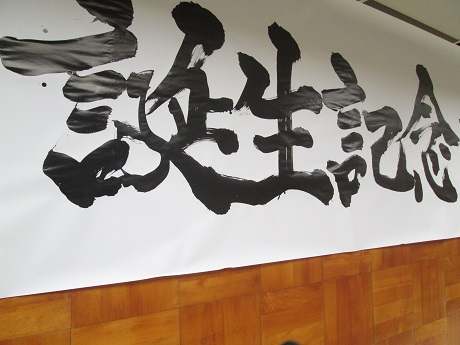 誕生記念